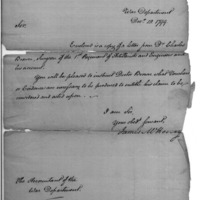 War Department
Decr. 10 1799
Sir,
Enclosed is a copy of a letter from Dr. Charles
Brown Surgeon of the 2d Regiment of Artillerists and Engineers and
his account.
You will be pleased to instruct Doctor Brown what Vouchers
or Evidence are necessary to be produced to entitle his claim to be
considered and acted upon.
I am Sir,
Your Obdt. Servant,
James McHenry
The Accountant of the
War Department.